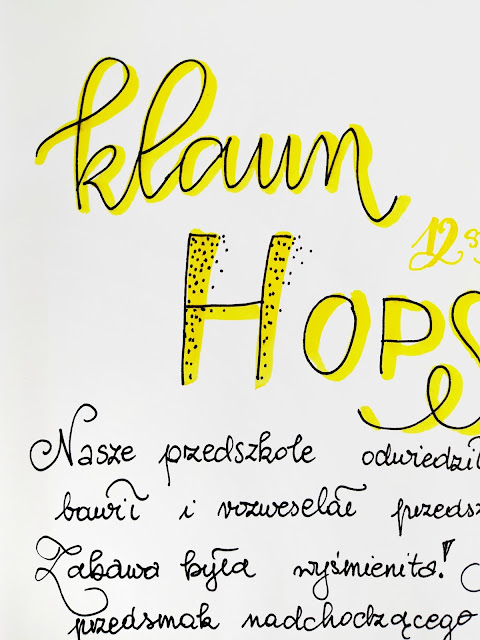 klaun
12
HOPS
Nasze przedszkole odwiedził
bawił i rozweselał przedsz
Zabawa była wyśmienita!
przedsmak nadchodzącego